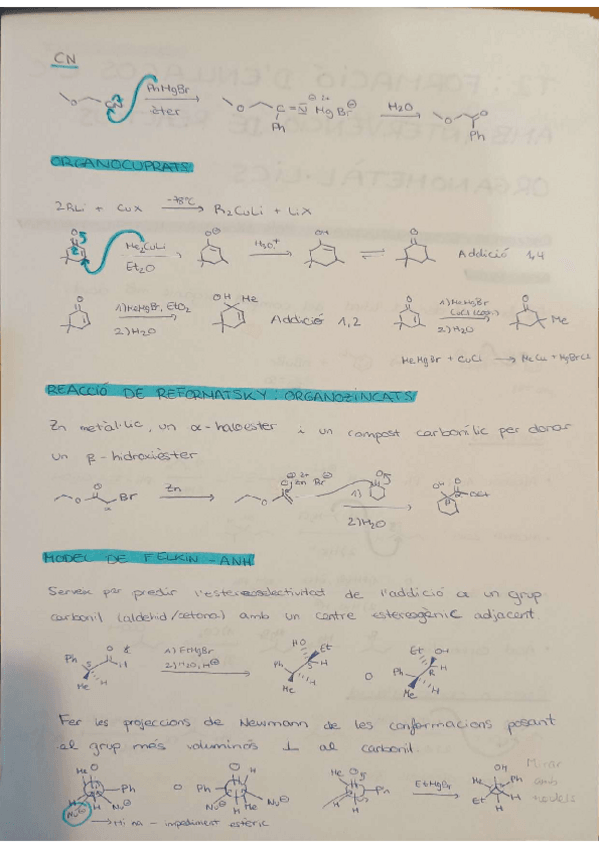 CN
PhMgBr
èter
H₂O
ORGANOCUPRATS
2RLi + CuX -78°C R₂CuLi + LiX
Me₂CuLi
Et₂O
H₃O⁺
Addició 1,4
1) MeHgBr, EtO₂
2) H₂O
OH Me
Addició 1,2
1) MeMgBr
2) H₂O
Me
MeMgBr + CuCl → MeCu + MgBrCl
REACCIÓ DE REFORMATSKY: ORGANOZINCATS
Zn metàl·lic, un α-haloèster i un compost carbonílic per donar
un β-hidroxièster
Br
Zn
1)
2) H₂O
MODEL DE FELKIN-ANH
Serveix per predir l'estereoselectivitat de l'addició a un grup
carbonil (aldehid/cetona) amb un centre estereogènic adjacent
Ph Me H
1) EtMgBr
2) H₂O, H⊕
HO Et Ph S H Me H
o
Et OH Ph R H Me H
Fer les projeccions de Newmann de les conformacions posant
el grup més voluminós ⊥ al carbonil.
Me O Ph H H Nu⊖
o
Ph O H Nu⊖ H Me Nu⊖
Me O Ph H
EtMgBr
OH Me Ph Et H H
Mirar
amb
models
Nu⊖ → Hi ha - impediment estèric